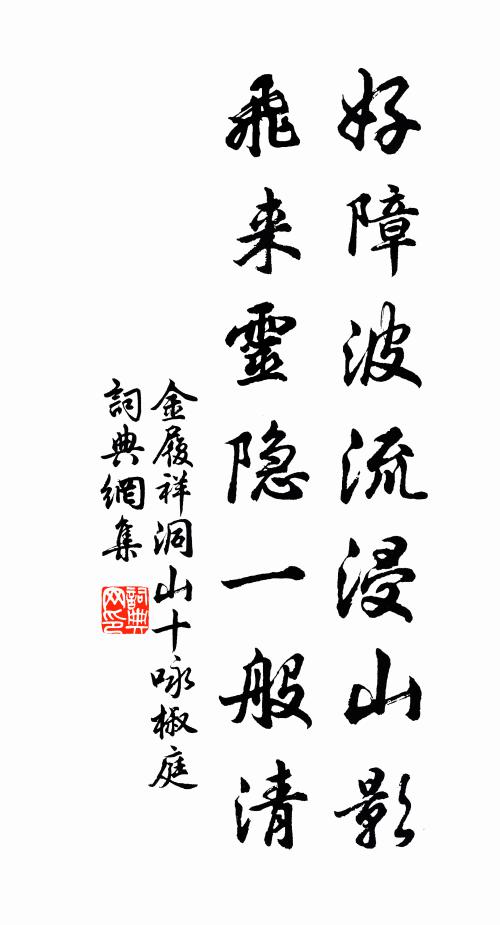 好障波流浸山影
飛来靈隐一般清
金履祥洞山十咏椒庭
詞典網集
詞典
网印